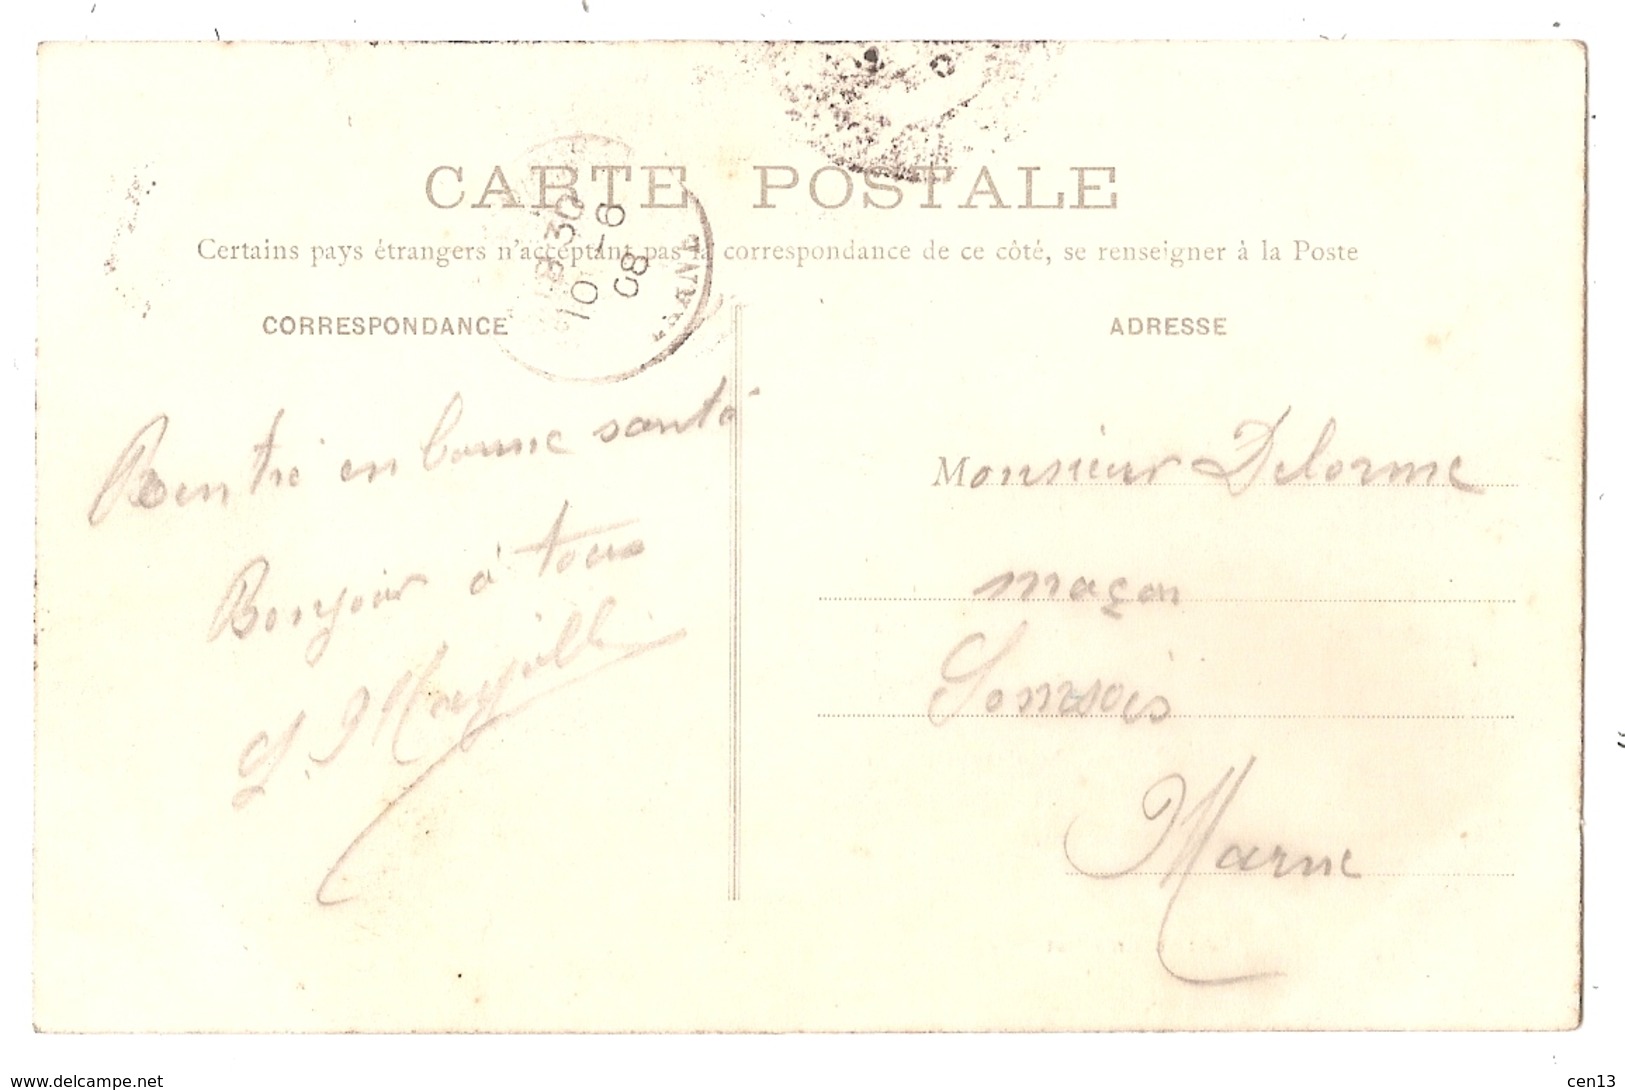 CARTE POSTALE
Certains pays étrangers n'acceptant pas la correspondance de ce côté, se renseigner à la Poste
CORRESPONDANCE
ADRESSE
8 30
10 -6
08
MARNE
Rentré en bonne santé
Bonjour à tous
Monsieur Delorme
maçon
Somsois
Marne
www.delcampe.net
cen13